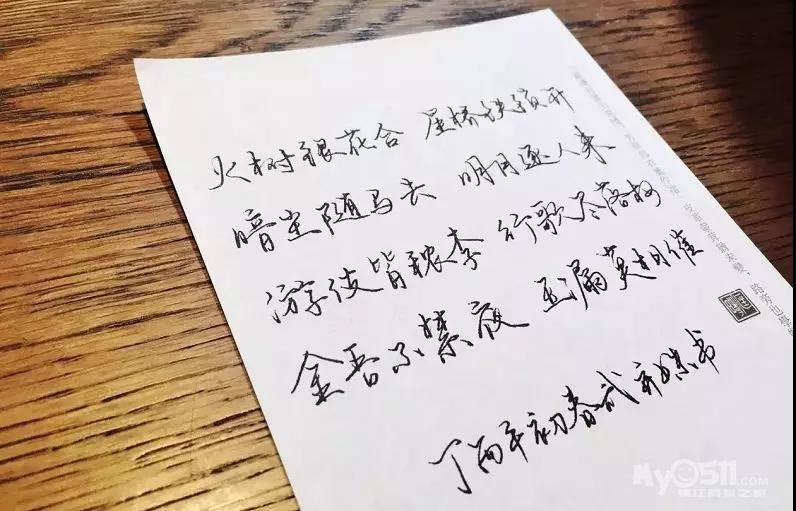 火树银花合 星桥铁锁开
暗尘随马去 明月逐人来
游伎皆秾李 行歌尽落梅
金吾不禁夜 玉漏莫相催
丁酉年初春武书
路旁也學
My0511.COM
镇江网友之家